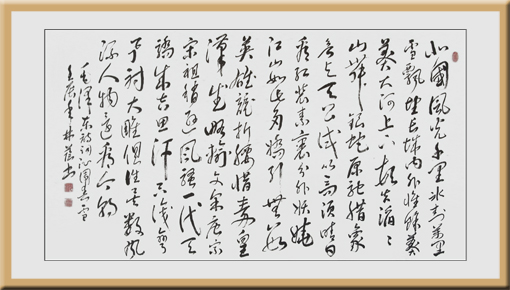 北國風光千里冰封萬里
雪飄望長城内外惟餘莽
莽大河上下頓失滔〻
山舞銀蛇原馳蜡象
欲與天公試比高須晴日
看紅裝素裹分外妖嬈
江山如此多嬌引無數
英雄競折腰惜秦皇
漢武略輸文采唐宗
宋祖稍遜風騷一代天
驕成吉思汗只識彎
弓射大雕俱往矣數風
流人物還看今朝
毛澤东詞沁園春雪
壬辰林書